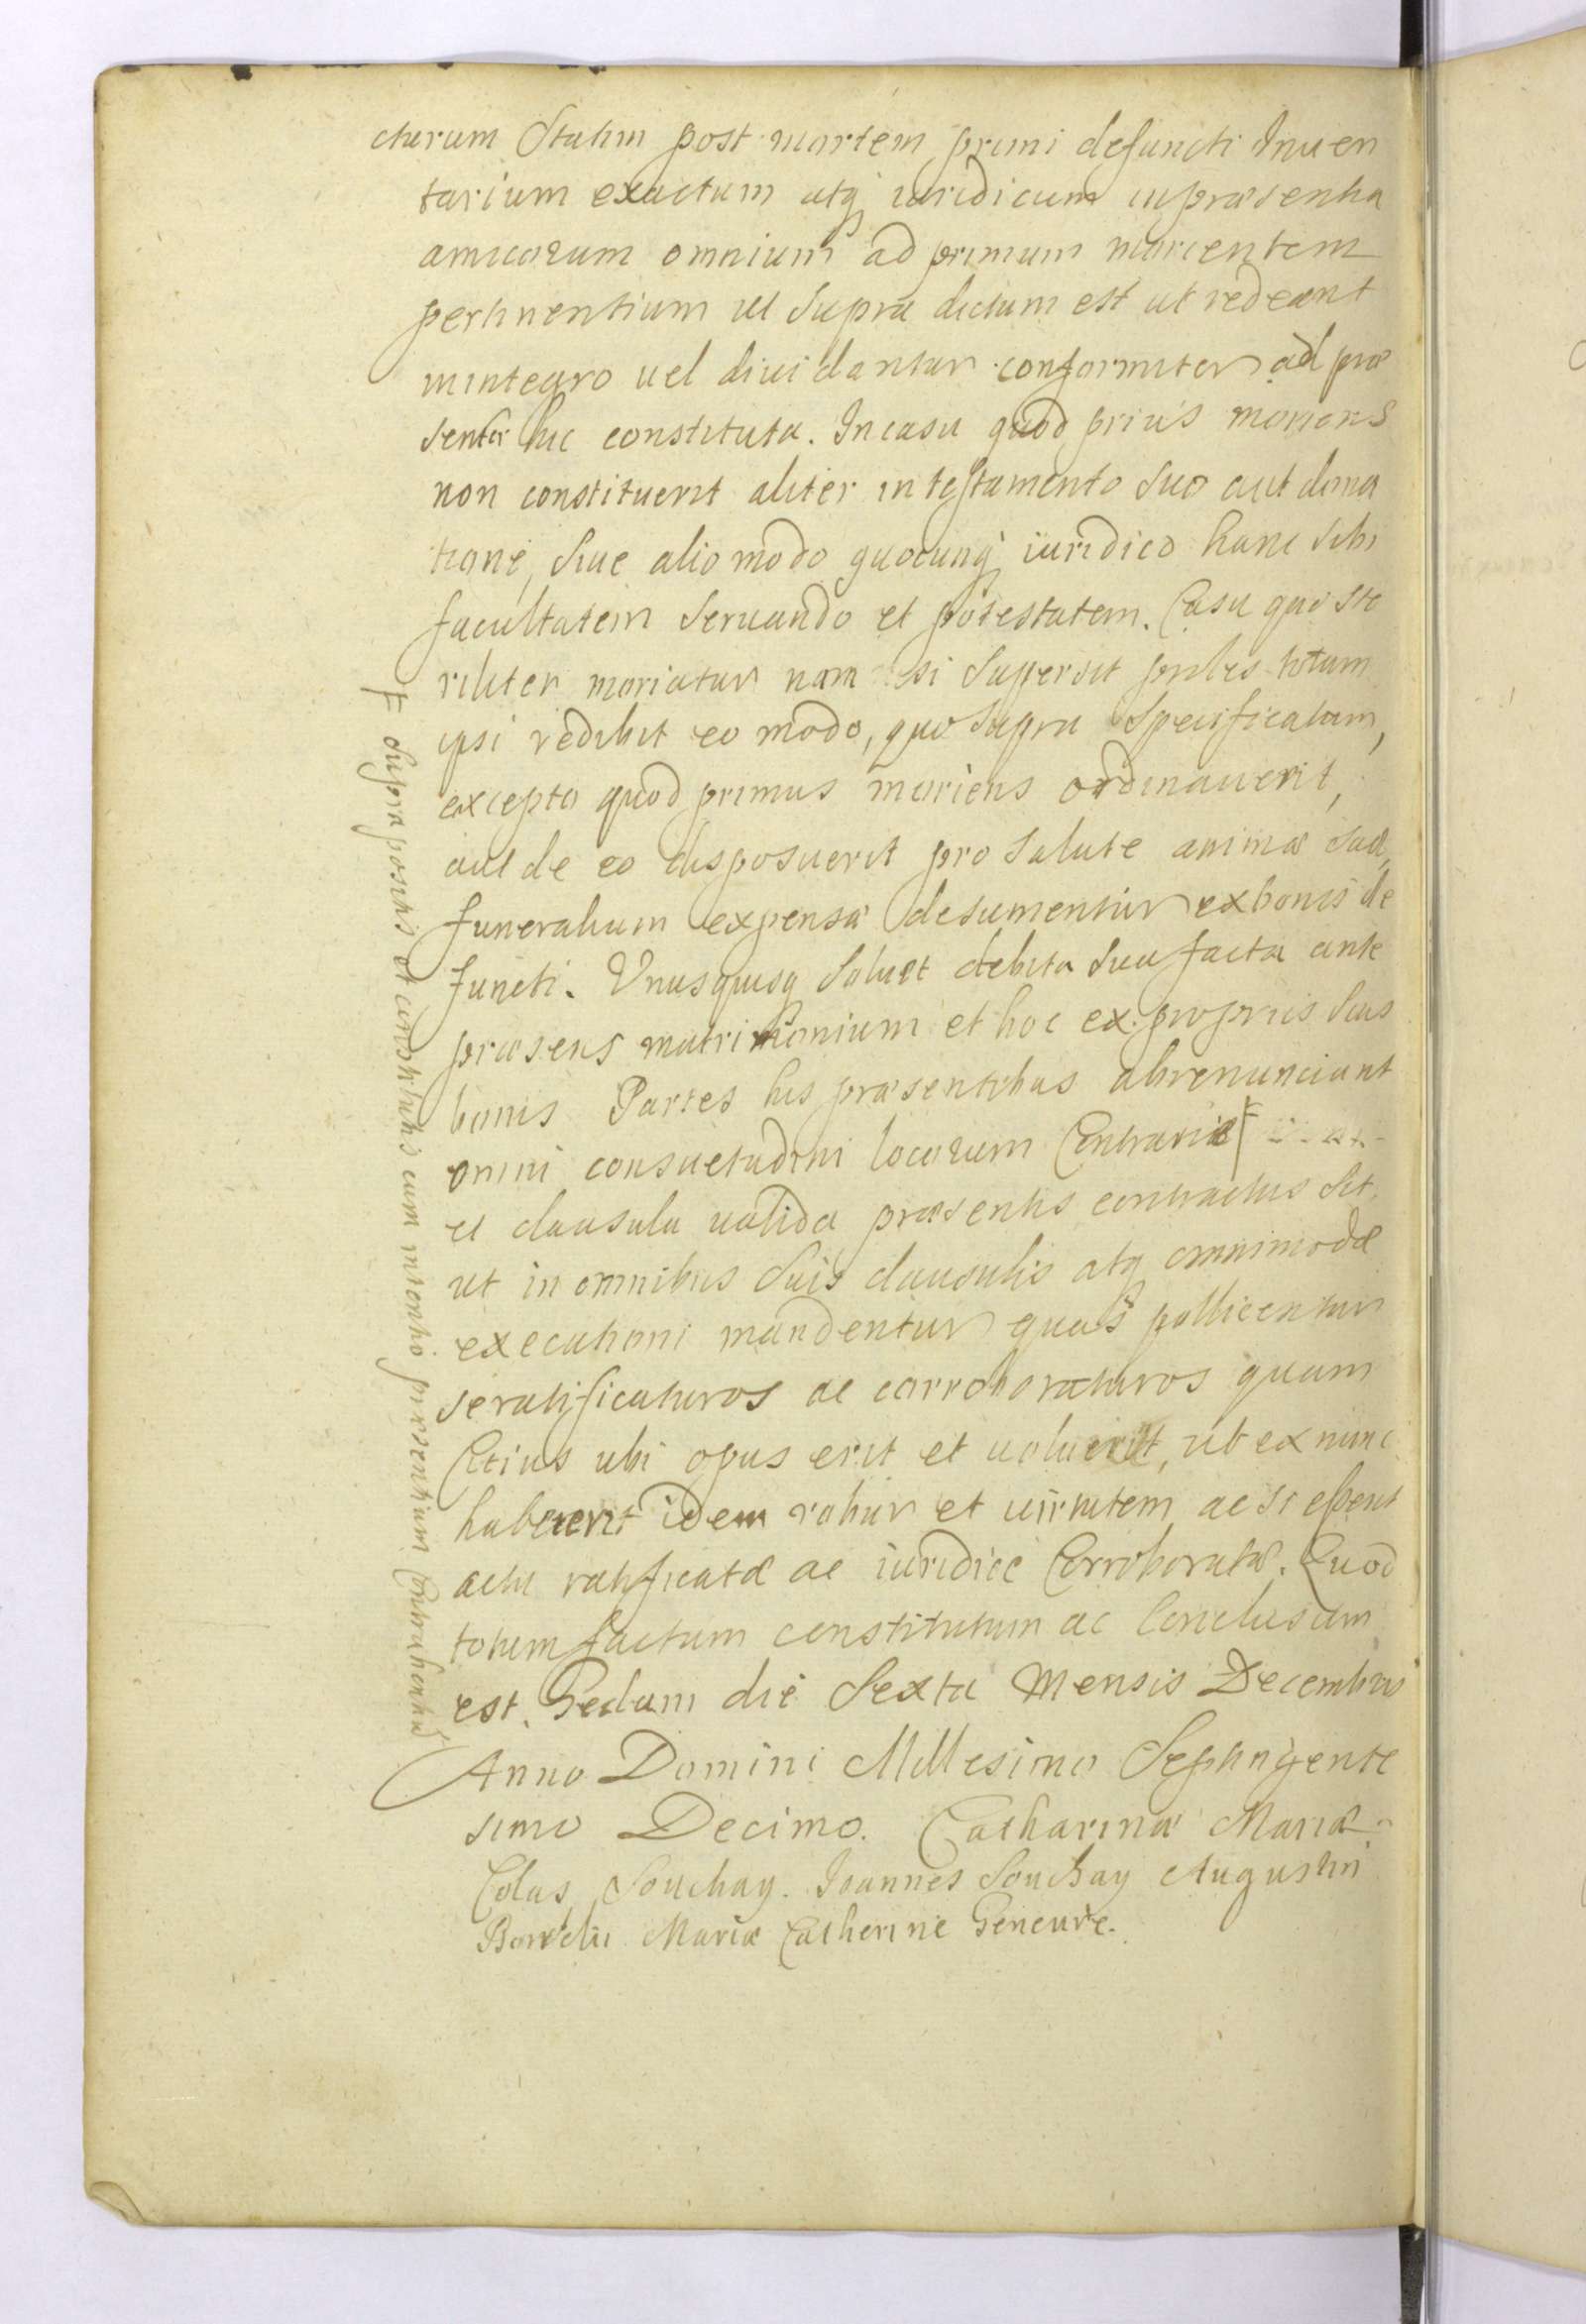 cturum Statim post mortem primi defuncti Inuen
tarium exactum atq iuridicum in præsentia
amicorum omnium ad primum morientem
pertinentium ut Supra dictum est ut redeant
in integro uel diuidantur conformiter ad præ
senter hic constituta. In casu quod prius moriens
non constituerit aliter in testamento Suo aut dona
tione, Siue alio modo quocunq iuridico hanc Sibi
facultatem Seruando et potestatem. Casu quo Ste
riliter moriatur nam si Supersit proles totum
ipsi redibit eo modo, quo Supra Specificatum,
excepto quod primus moriens ordinauerit,
aut de eo disposuerit pro Salute animæ Suæ,
funeralium expensæ desumentur ex bonis de
functi. Vnusquisq Soluet debita Sua facta ante
præsens matrimonium et hoc ex propriis Suis
bonis Partes his præsentibus abrenunciant
omni consuetudini locorum Contrariæ
et clausula ualida præsentis contractus Sit,
ut in omnibus Suis clausulis atq omnimodæ
executioni mandentur quas pollicentur
se ratificaturos ac corroboraturos quam
Citius ubi opus erit et uoluerit, ut ex nunc
habuerit idem robur et uirtutem ac si essent
actu ratificatæ ac iuridicè Corroboratæ. Quod
totum factum constitutum ac Conclusum
est. Gedani die Sexta Mensis Decembris
Anno Domini Millesimo Septingente
simo Decimo. Catharina Maria
Colas, Souchay. Joannes Souchay Augustin
Bordelii Maria Catherine Geneuve.
Ƒ Supra positis et constitutis cum intentio præsentium Contrahentium